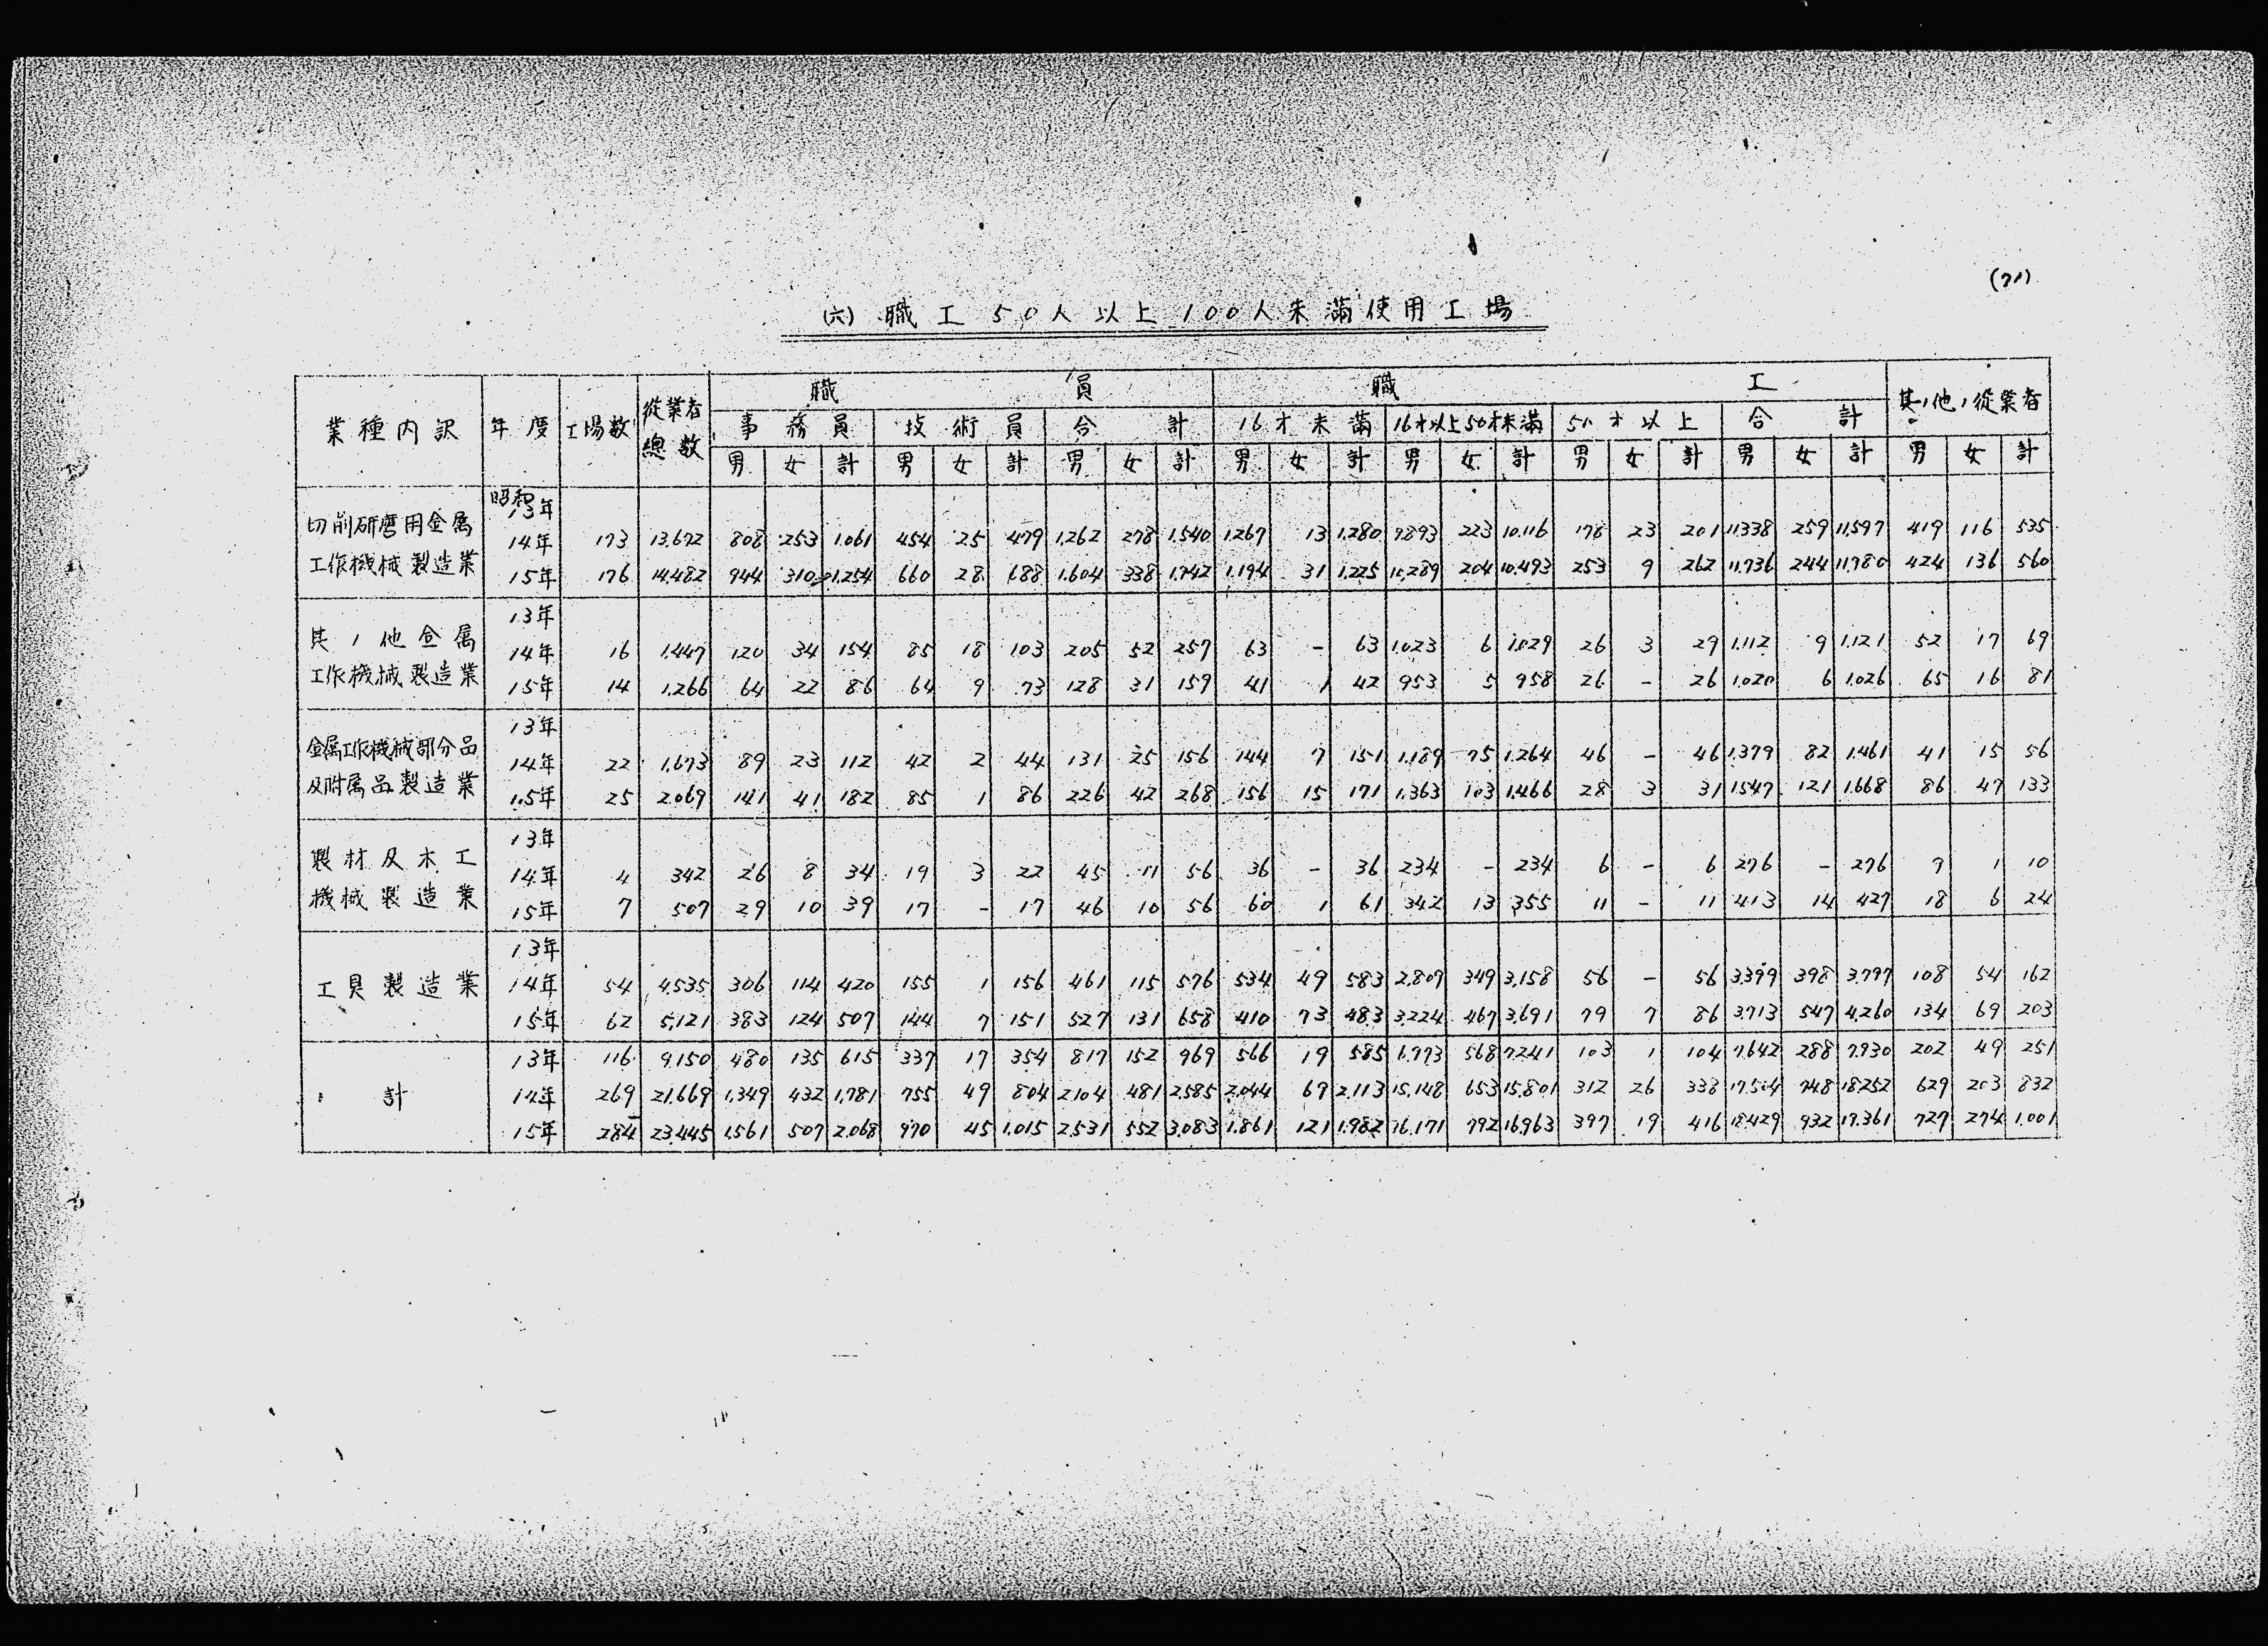 (71)
(六) 職工50人以上100人未満使用工場
業種内訳 年度 工場数 從業者總数 職員 職工 其ノ他ノ從業者
事務員 技術員 合計 16才未満 16才以上50才未満 50才以上 合計
男 女 計 男 女 計 男 女 計 男 女 計 男 女 計 男 女 計 男 女 計 男 女 計
切削研磨用金属工作機械製造業
昭和13年
14年 173 13,672 808 253 1,061 454 25 479 1,262 278 1,540 1,267 13 1,280 9,893 223 10,116 178 23 201 11,338 259 11,597 419 116 535
15年 176 14,482 944 310 1,254 660 28 688 1,604 338 1,942 1,194 31 1,225 10,289 204 10,493 253 9 262 11,736 244 11,980 424 136 560
其ノ他金属工作機械製造業
13年
14年 16 1,447 120 34 154 85 18 103 205 52 257 63 - 63 1,023 6 1,029 26 3 29 1,112 9 1,121 52 17 69
15年 14 1,266 64 22 86 64 9 73 128 31 159 41 1 42 953 5 958 26 - 26 1,020 6 1,026 65 16 81
金属工作機械部分品及附属品製造業
13年
14年 22 1,673 89 23 112 42 2 44 131 25 156 144 7 151 1,189 75 1,264 46 - 46 1,379 82 1,461 41 15 56
15年 25 2,069 141 41 182 85 1 86 226 42 268 156 15 171 1,363 103 1,466 28 3 31 1,547 121 1,668 86 47 133
製材及木工機械製造業
13年
14年 4 342 26 8 34 19 3 22 45 11 56 36 - 36 234 - 234 6 - 6 276 - 276 9 1 10
15年 7 507 29 10 39 17 - 17 46 10 56 60 1 61 342 13 355 11 - 11 413 14 427 18 6 24
工具製造業
13年
14年 54 4,535 306 114 420 155 1 156 461 115 576 534 49 583 2,809 349 3,158 56 - 56 3,399 398 3,797 108 54 162
15年 62 5,121 383 124 507 144 7 151 527 131 658 410 73 483 3,224 467 3,691 79 7 86 3,713 547 4,260 134 69 203
計
13年 116 9,150 480 135 615 337 17 354 817 152 969 566 19 585 6,973 568 7,241 103 1 104 7,642 288 7,930 202 49 251
14年 269 21,669 1,349 432 1,781 755 49 804 2,104 481 2,585 2,044 69 2,113 15,148 653 15,801 312 26 338 17,504 748 18,252 629 203 832
15年 284 23,445 1,561 507 2,068 970 45 1,015 2,531 552 3,083 1,861 121 1,982 16,171 792 16,963 397 19 416 18,429 932 19,361 727 274 1,001